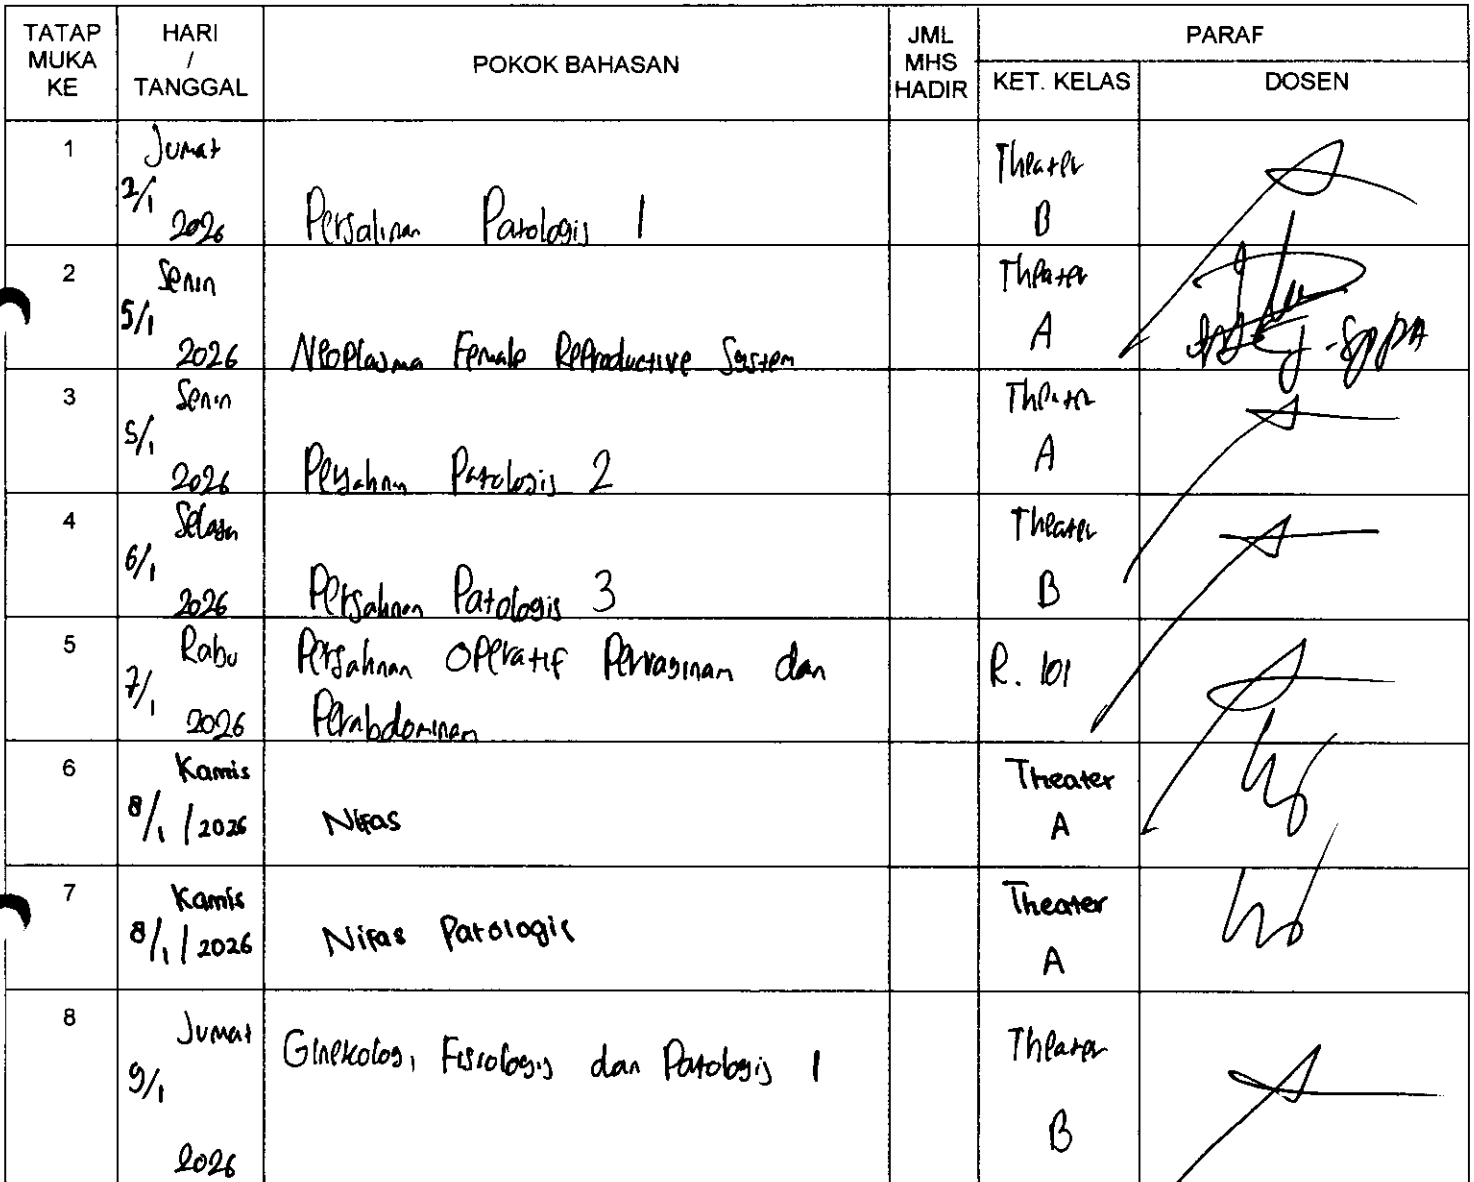 TATAP MUKA KE | HARI / TANGGAL | POKOK BAHASAN | JML MHS HADIR | PARAF
KET. KELAS | DOSEN
1 | Jumat 2/1 2026 | Persalinan Patologis 1 | Theater B
2 | Senin 5/1 2026 | Neoplasma Female Reproductive System | Theater A
3 | Senin 5/1 2026 | Persalinan Patologis 2 | Theater A
4 | Selasa 6/1 2026 | Persalinan Patologis 3 | Theater B
5 | Rabu 7/1 2026 | Persalinan Operatif Pervaginam dan Perabdominam | R. 101
6 | Kamis 8/1/2026 | Nifas | Theater A
7 | Kamis 8/1/2026 | Nifas Patologis | Theater A
8 | Jumat 9/1 2026 | Ginekologi Fisiologis dan Patologis 1 | Theater B